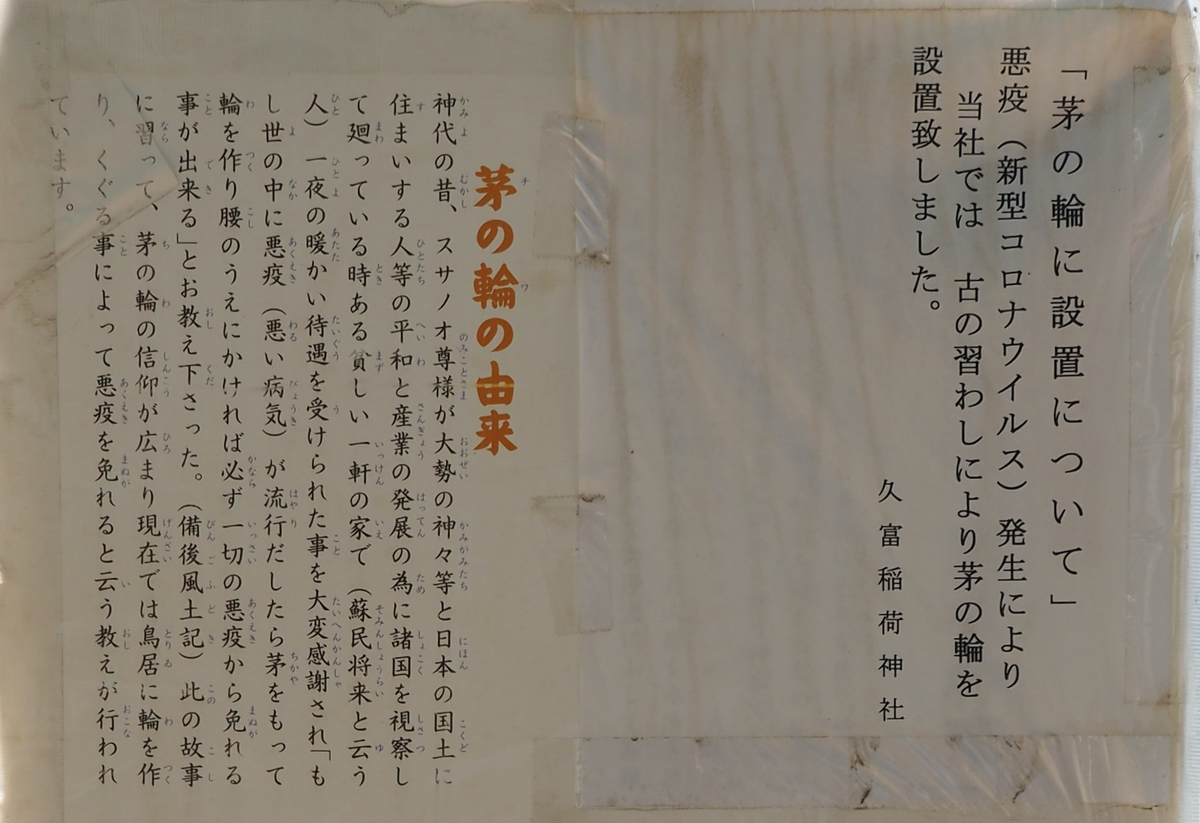 「茅の輪に設置について」
悪疫（新型コロナウイルス）発生により
当社では　古の習わしにより茅の輪を
設置致しました。
久富稲荷神社
茅の輪の由来
神代の昔、スサノオ尊様が大勢の神々等と日本の国土に
住まいする人等の平和と産業の発展の為に諸国を視察し
て廻っている時ある貧しい一軒の家で（蘇民将来と云う
人）一夜の暖かい待遇を受けられた事を大変感謝され「も
し世の中に悪疫（悪い病気）が流行だしたら茅をもって
輪を作り腰のうえにかければ必ず一切の悪疫から免れる
事が出来る」とお教え下さった。（備後風土記）此の故事
に習って、茅の輪の信仰が広まり現在では鳥居に輪を作
り、くぐる事によって悪疫を免れると云う教えが行われ
ています。